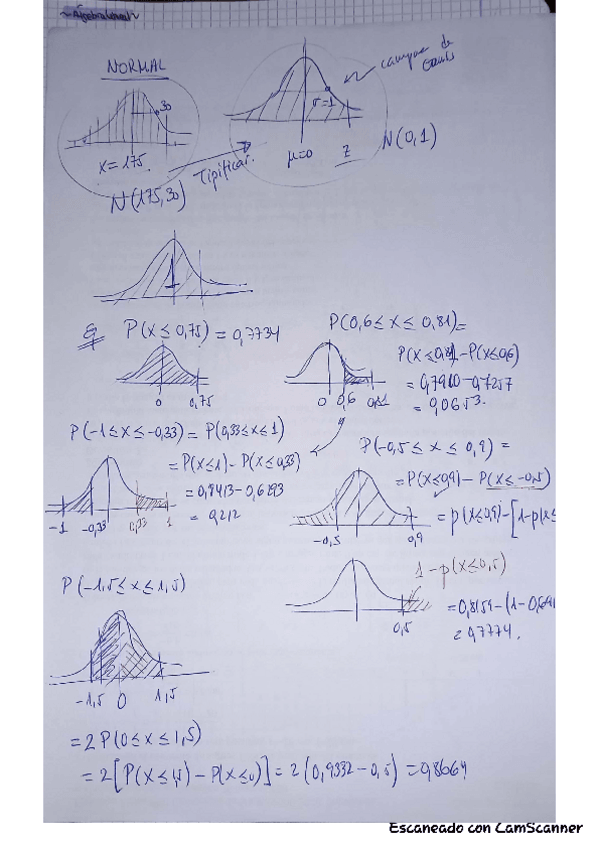 NORMAL
30
campana de
Gauss
σ=1
x=175
μ=0
z
N(0,1)
Tipificar.
N(175,30)
Ej
P(x≤0,75)=0,7734
0
0,75
P(0,6≤x≤0,81)=
P(x≤0,81)-P(x≤0,6)
=0,7910-0,7257
=0,0653.
0
0,6
0,81
P(-1≤x≤-0,33)=P(0,33≤x≤1)
=P(x≤1)-P(x≤0,33)
=0,8413-0,6293
=0,212
-1
-0,33
0,33
1
P(-0,5≤x≤0,9)=
=P(x≤0,9)-P(x≤-0,5)
=p(x≤0,9)-[1-p(x≤
-0,5
0,9
1-p(x≤0,5)
=0,8159-(1-0,691
=0,7774.
0,5
P(-1,5≤x≤1,5)
-1,5
0
1,5
=2P(0≤x≤1,5)
=2[P(x≤1,5)-P(x≤0)]=2(0,9332-0,5)=0,8664
Escaneado con CamScanner